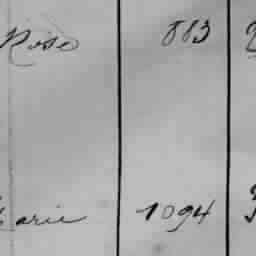 Rose 883
Marie 1094